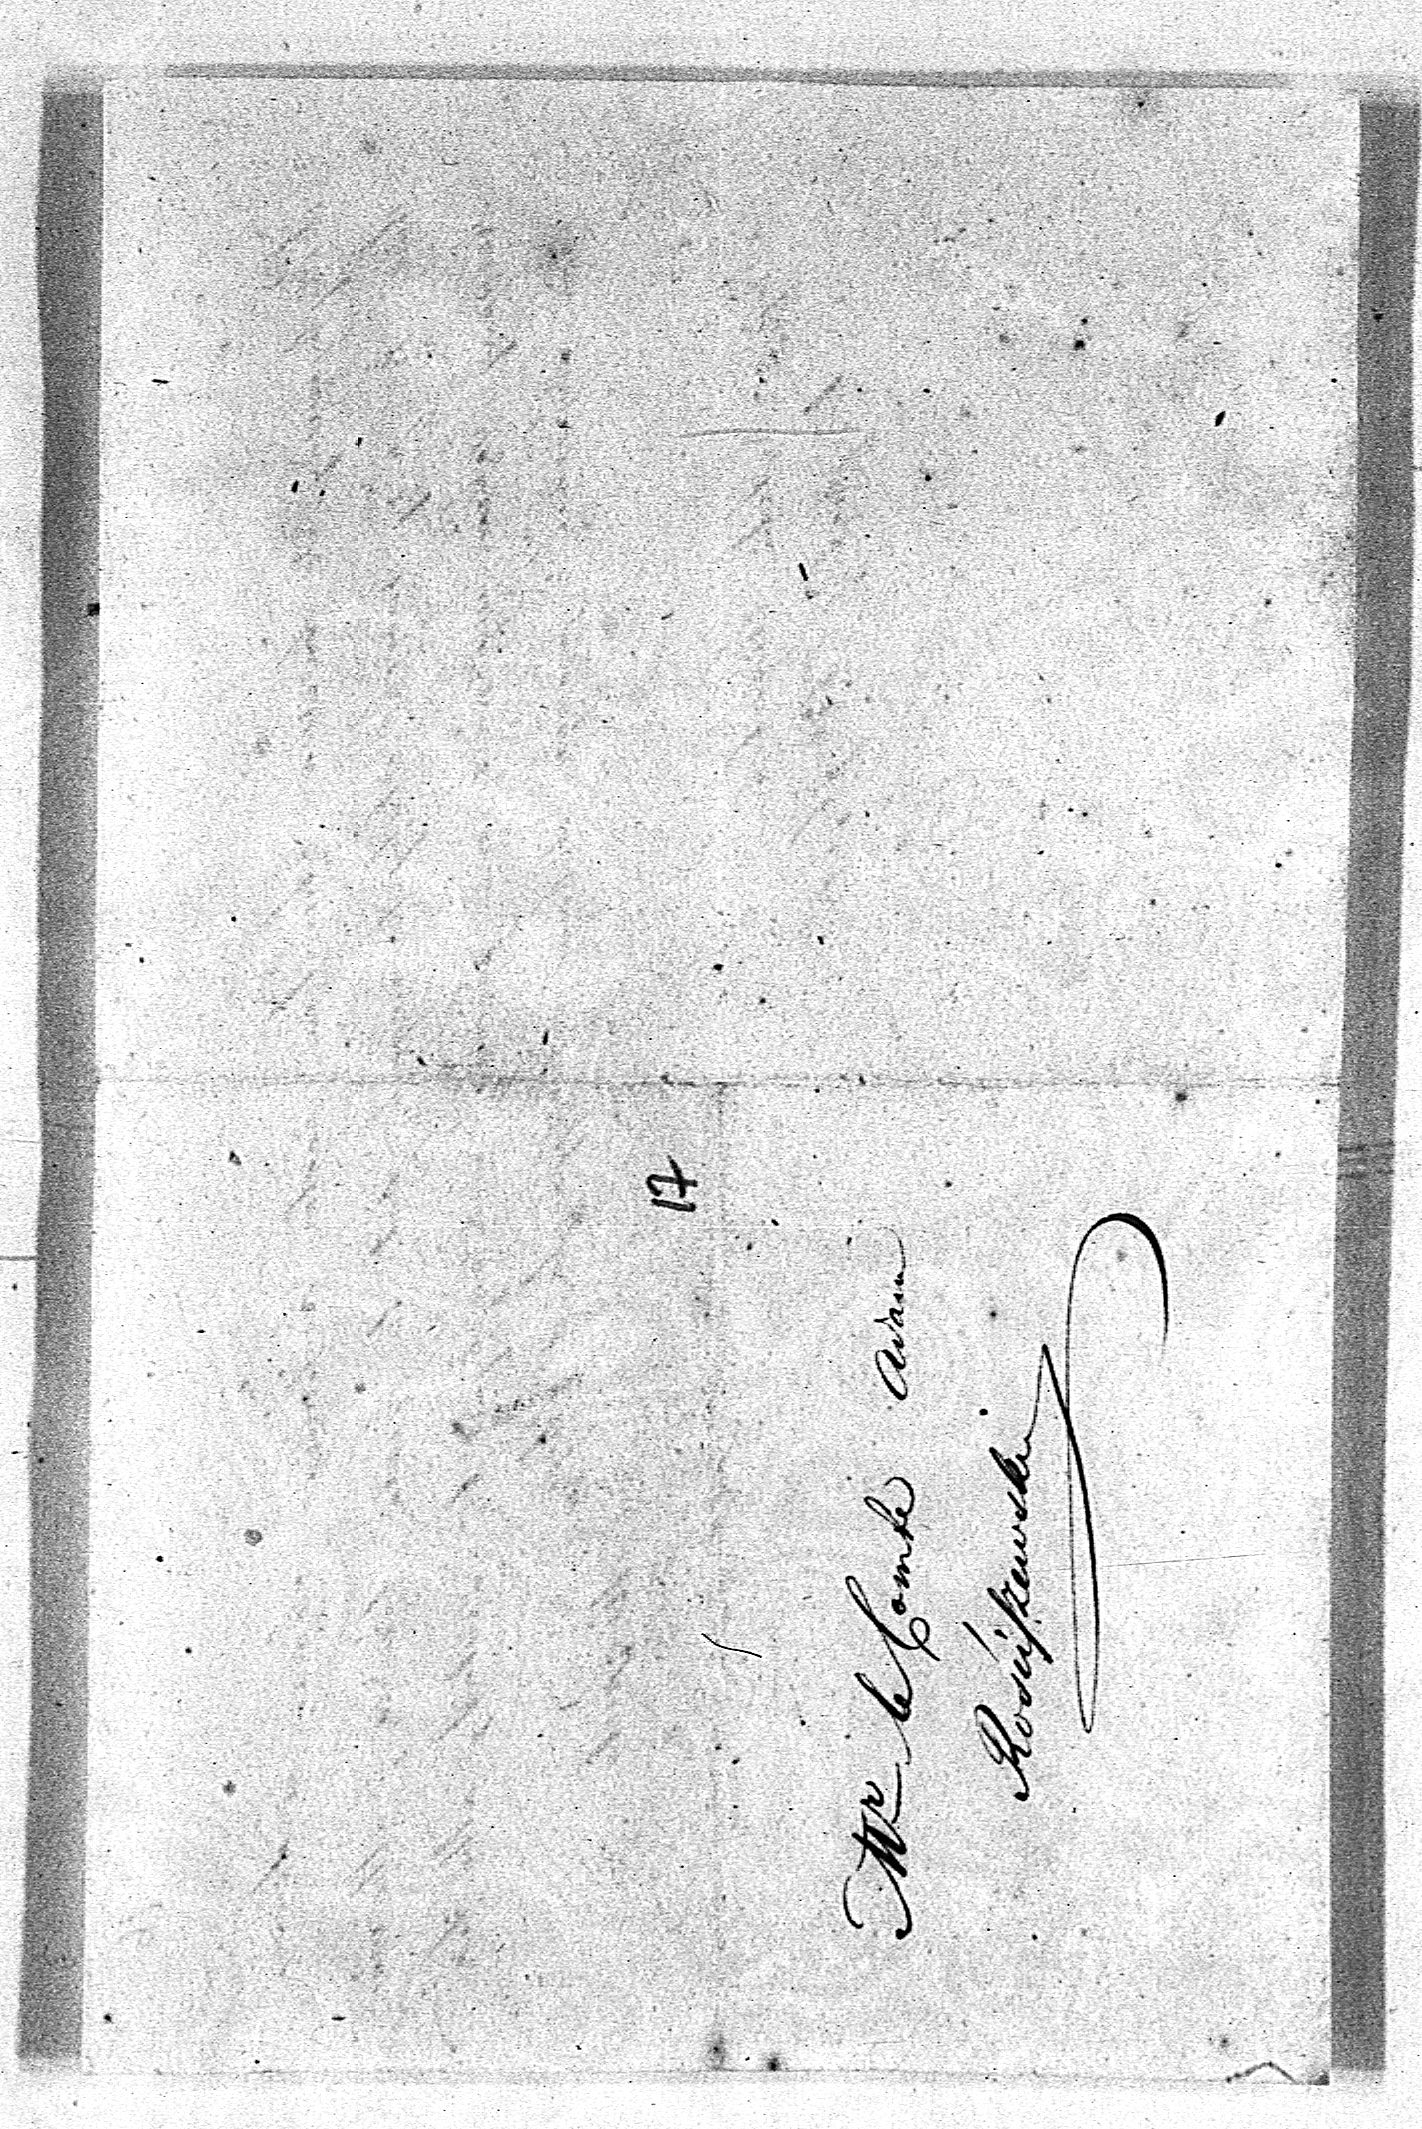 17
Mr le Comte Adam
Rościszewski